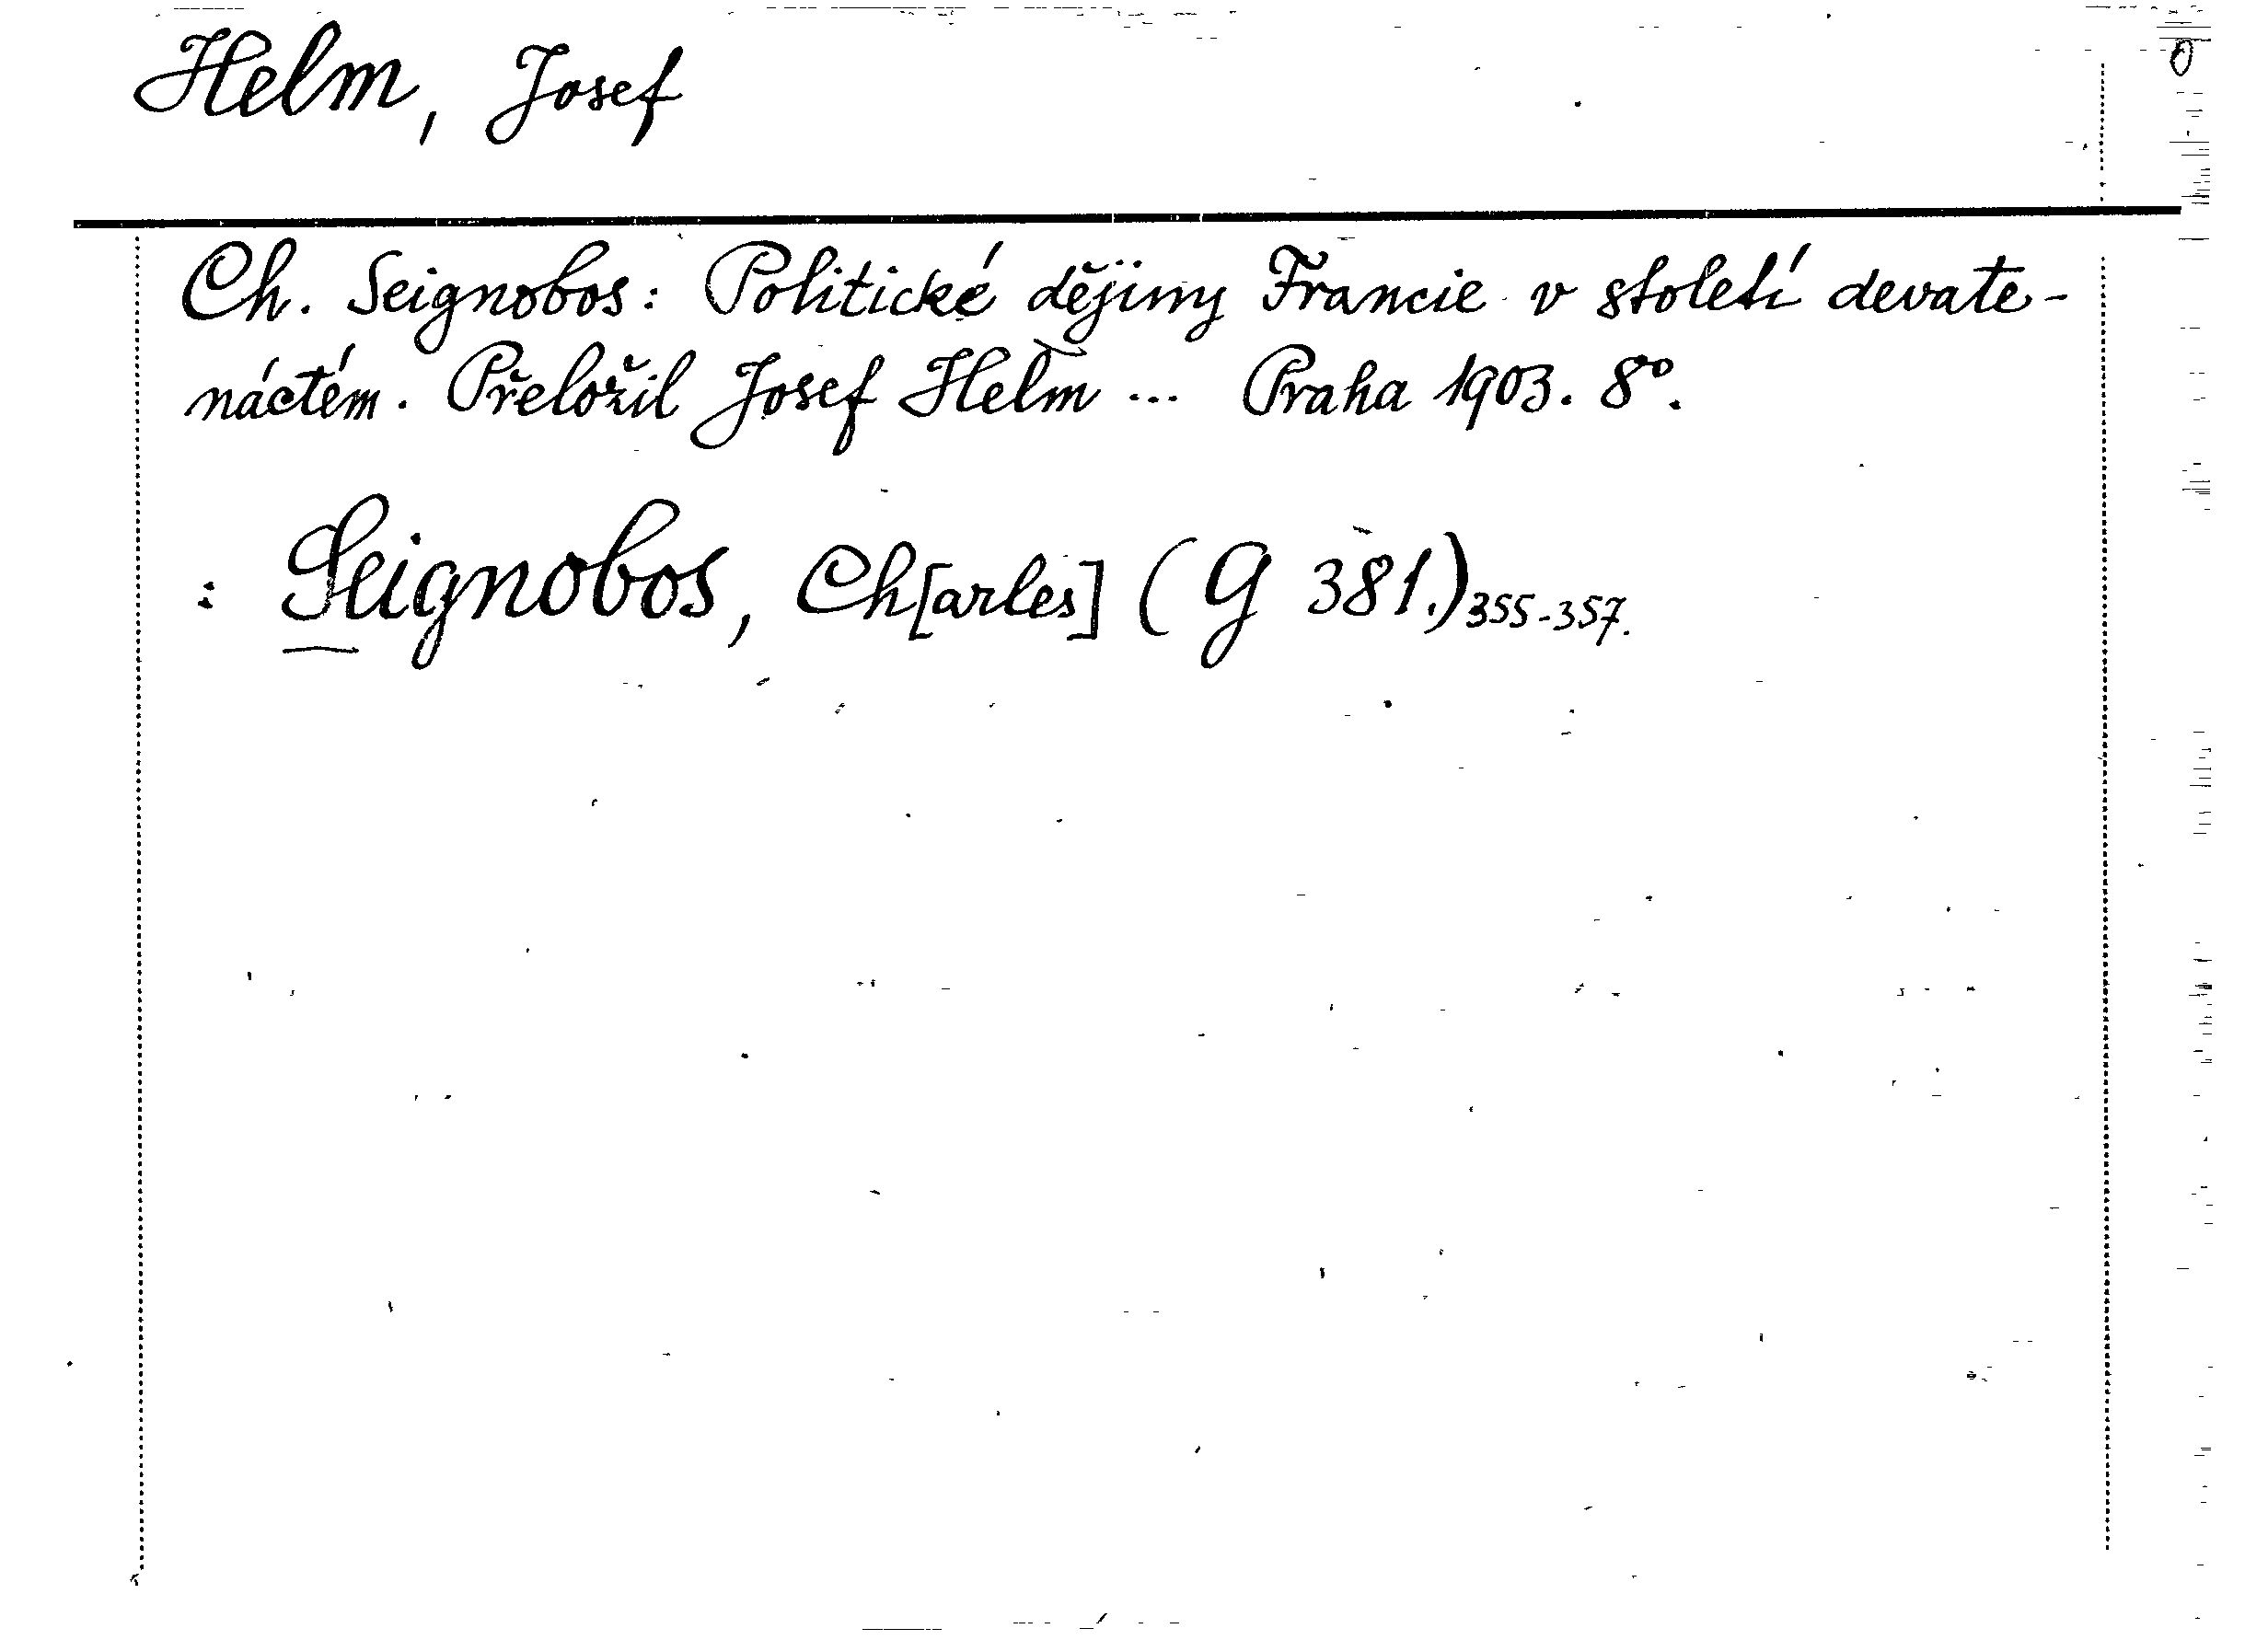 Helm, Josef
Ch. Seignobos: Politické dějiny Francie v století devate-
náctém. Přeložil Josef Helm ... Praha 1903. 8°.
: Seignobos, Ch[arles] (G 381.) 355-357.